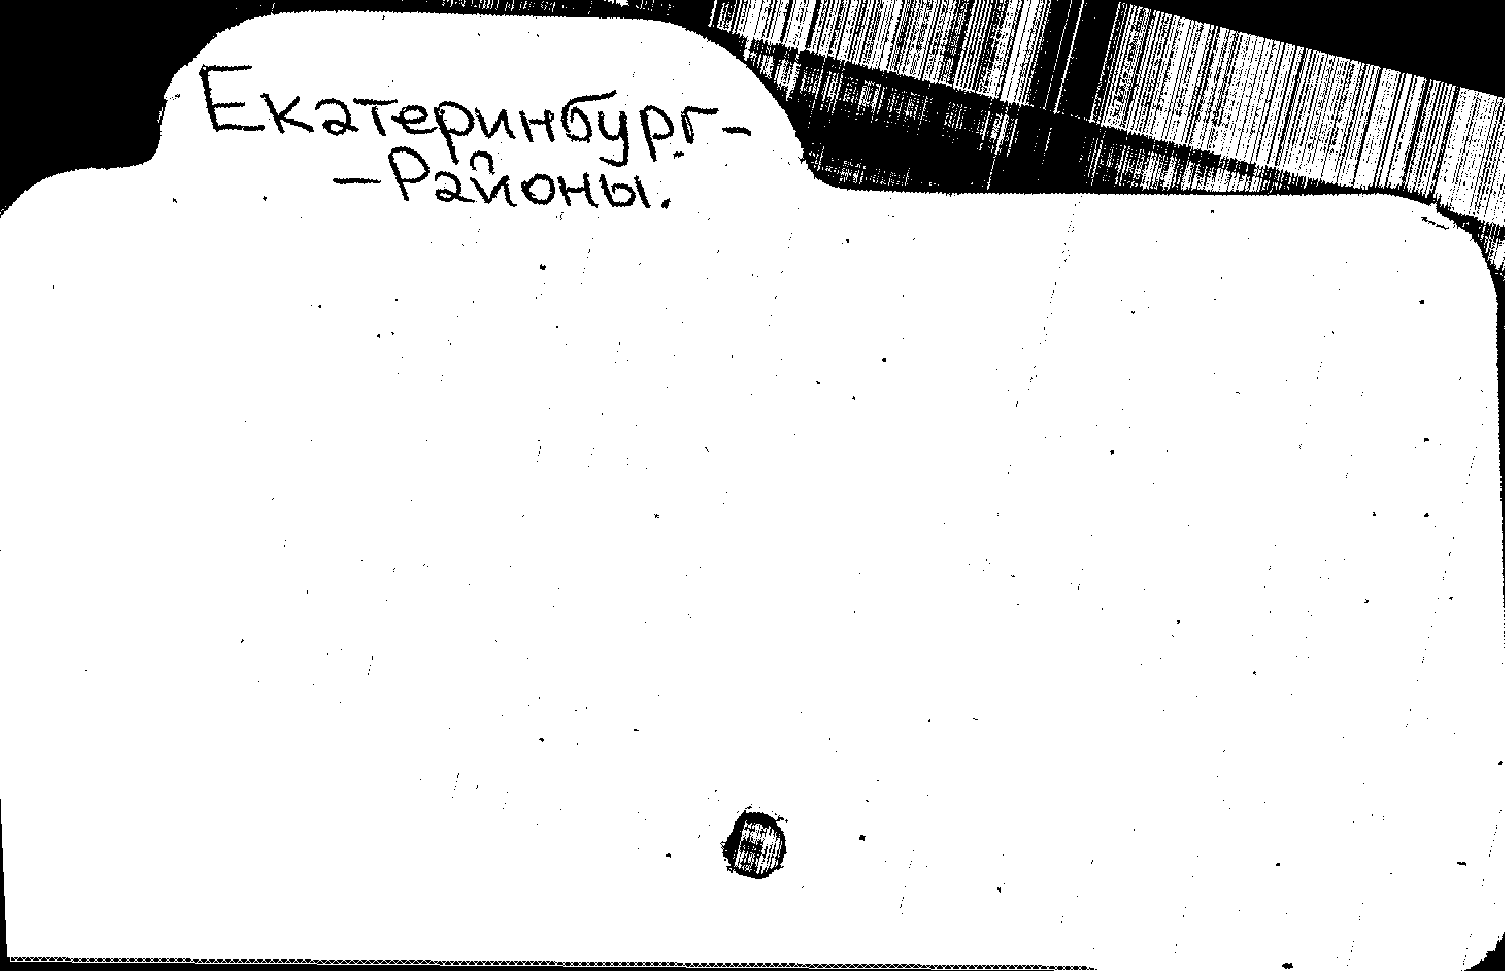 Екатеринбург-
-Районы.